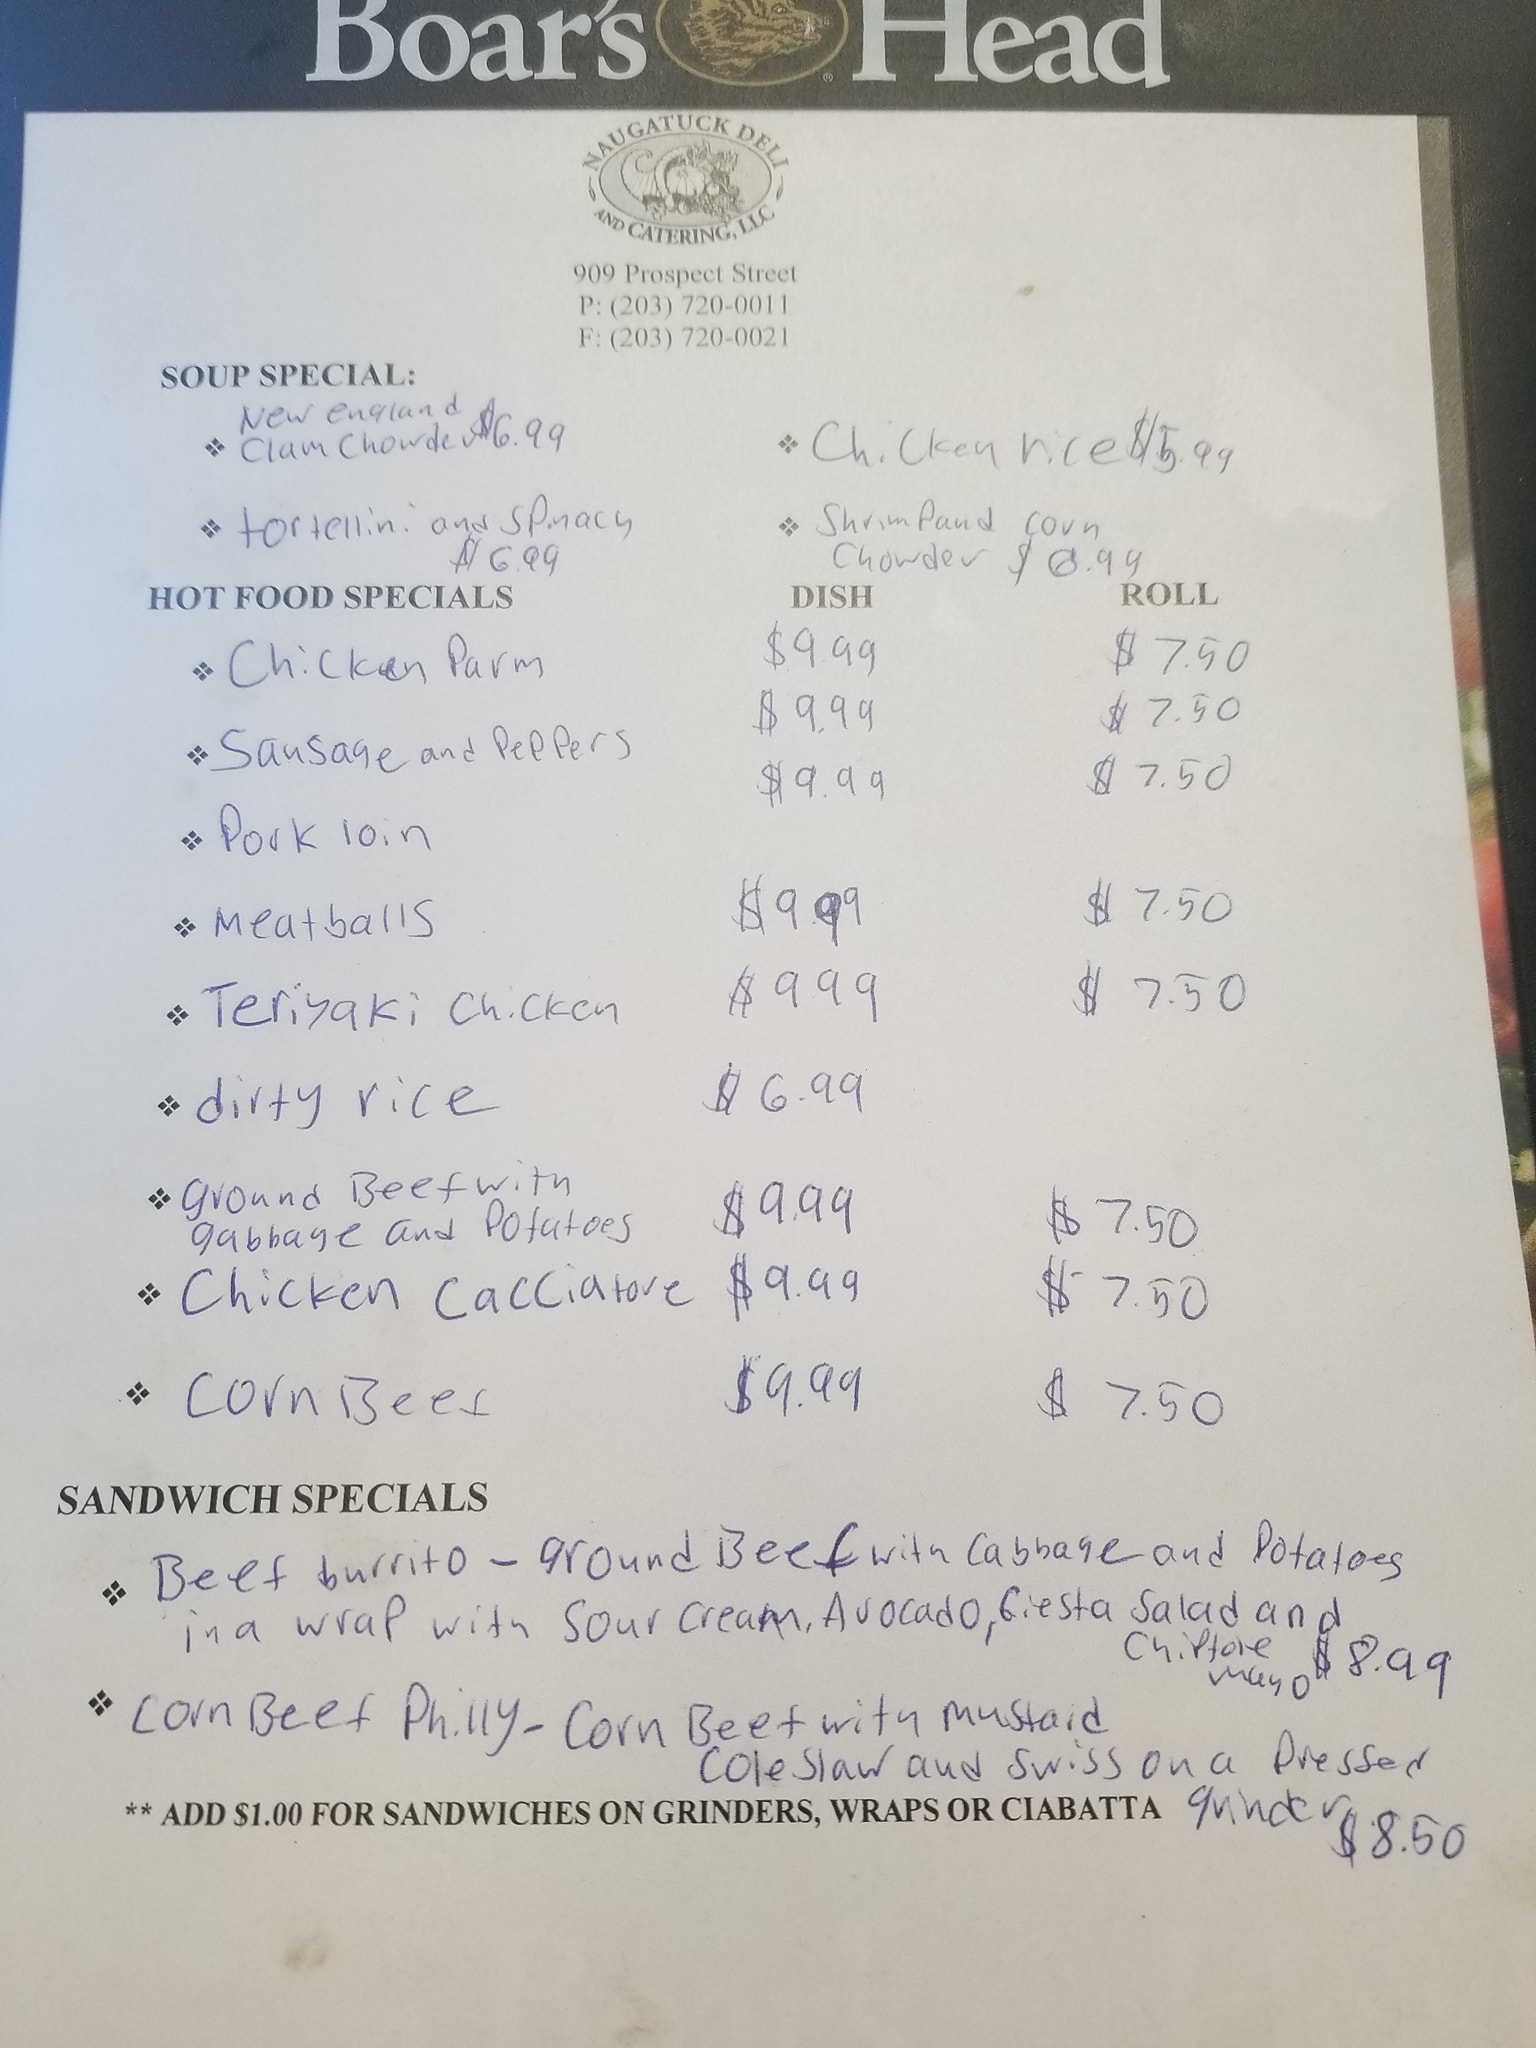 Boar's Head
®
NAUGATUCK DELI
AND CATERING, LLC
909 Prospect Street
P: (203) 720-0011
F: (203) 720-0021
SOUP SPECIAL:
New england
Clam Chowder $6.99
Chicken rice $5.99
tortellini and spinach
$6.99
Shrimp and corn
Chowder $6.99
HOT FOOD SPECIALS DISH ROLL
Chicken Parm $9.99 $7.50
Sausage and Peppers $9.99 $7.50
Pork loin $9.99 $7.50
Meatballs $9.99 $7.50
Teriyaki Chicken $9.99 $7.50
dirty rice $6.99
ground Beef with
gabbage and Potatoes $9.99 $7.50
Chicken Cacciatore $9.99 $7.50
Corn Beef $9.99 $7.50
SANDWICH SPECIALS
Beef burrito - ground Beef with Cabbage and Potatoes
in a wrap with Sour Cream, Avocado, fiesta Salad and
Chiptole
mayo $8.99
Corn Beef Philly - Corn Beef with mustard
Coleslaw and swiss on a Pressed
grinder
** ADD $1.00 FOR SANDWICHES ON GRINDERS, WRAPS OR CIABATTA
$8.50